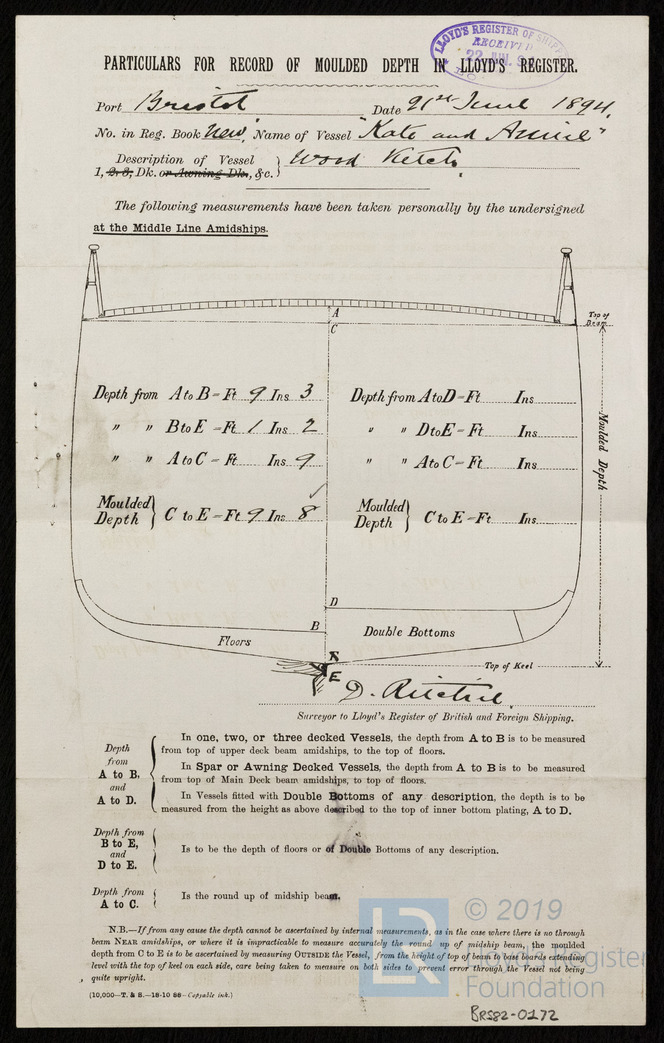 LLOYD'S REGISTER OF SHIPP
RECEIVED
PARTICULARS FOR RECORD OF MOULDED DEPTH IN LLOYD'S REGISTER.
Port Bristol Date 21st June 1894.
No. in Reg. Book New, Name of Vessel "Kate and Annie"
Description of Vessel } Wood Ketch
1, 2, 3, Dk. or Awning Dk., &c.
The following measurements have been taken personally by the undersigned
at the Middle Line Amidships.
A
C
Top of
Beam
Moulded Depth
Depth from A to B = Ft 9 Ins 3
" " B to E = Ft 1 Ins 2
" " A to C = Ft Ins 9
Moulded Depth } C to E = Ft 9 Ins 8
Depth from A to D = Ft Ins
" " D to E = Ft Ins
" " A to C = Ft Ins
Moulded Depth } C to E = Ft Ins
D
B
Floors
Double Bottoms
E
Top of Keel
D. Ritchie.
Surveyor to Lloyd's Register of British and Foreign Shipping.
Depth from A to B, and A to D.
In one, two, or three decked Vessels, the depth from A to B is to be measured
from top of upper deck beam amidships, to the top of floors.
In Spar or Awning Decked Vessels, the depth from A to B is to be measured
from top of Main Deck beam amidships, to top of floors.
In Vessels fitted with Double Bottoms of any description, the depth is to be
measured from the height as above described to the top of inner bottom plating, A to D.
Depth from B to E, and D to E.
Is to be the depth of floors or of Double Bottoms of any description.
Depth from A to C.
Is the round up of midship beam.
N.B.—If from any cause the depth cannot be ascertained by internal measurements, as in the case where there is no through
beam NEAR amidships, or where it is impracticable to measure accurately the round up of midship beam, the moulded
depth from C to E is to be ascertained by measuring OUTSIDE the Vessel, from the height of top of beam to base boards extending
level with the top of keel on each side, care being taken to measure on both sides to prevent error through the Vessel not being
quite upright.
(10,000—T. & S.—18-10 88—Copyable ink.)
LR
© 2019
Lloyd's Register
Foundation
BRS82-0172